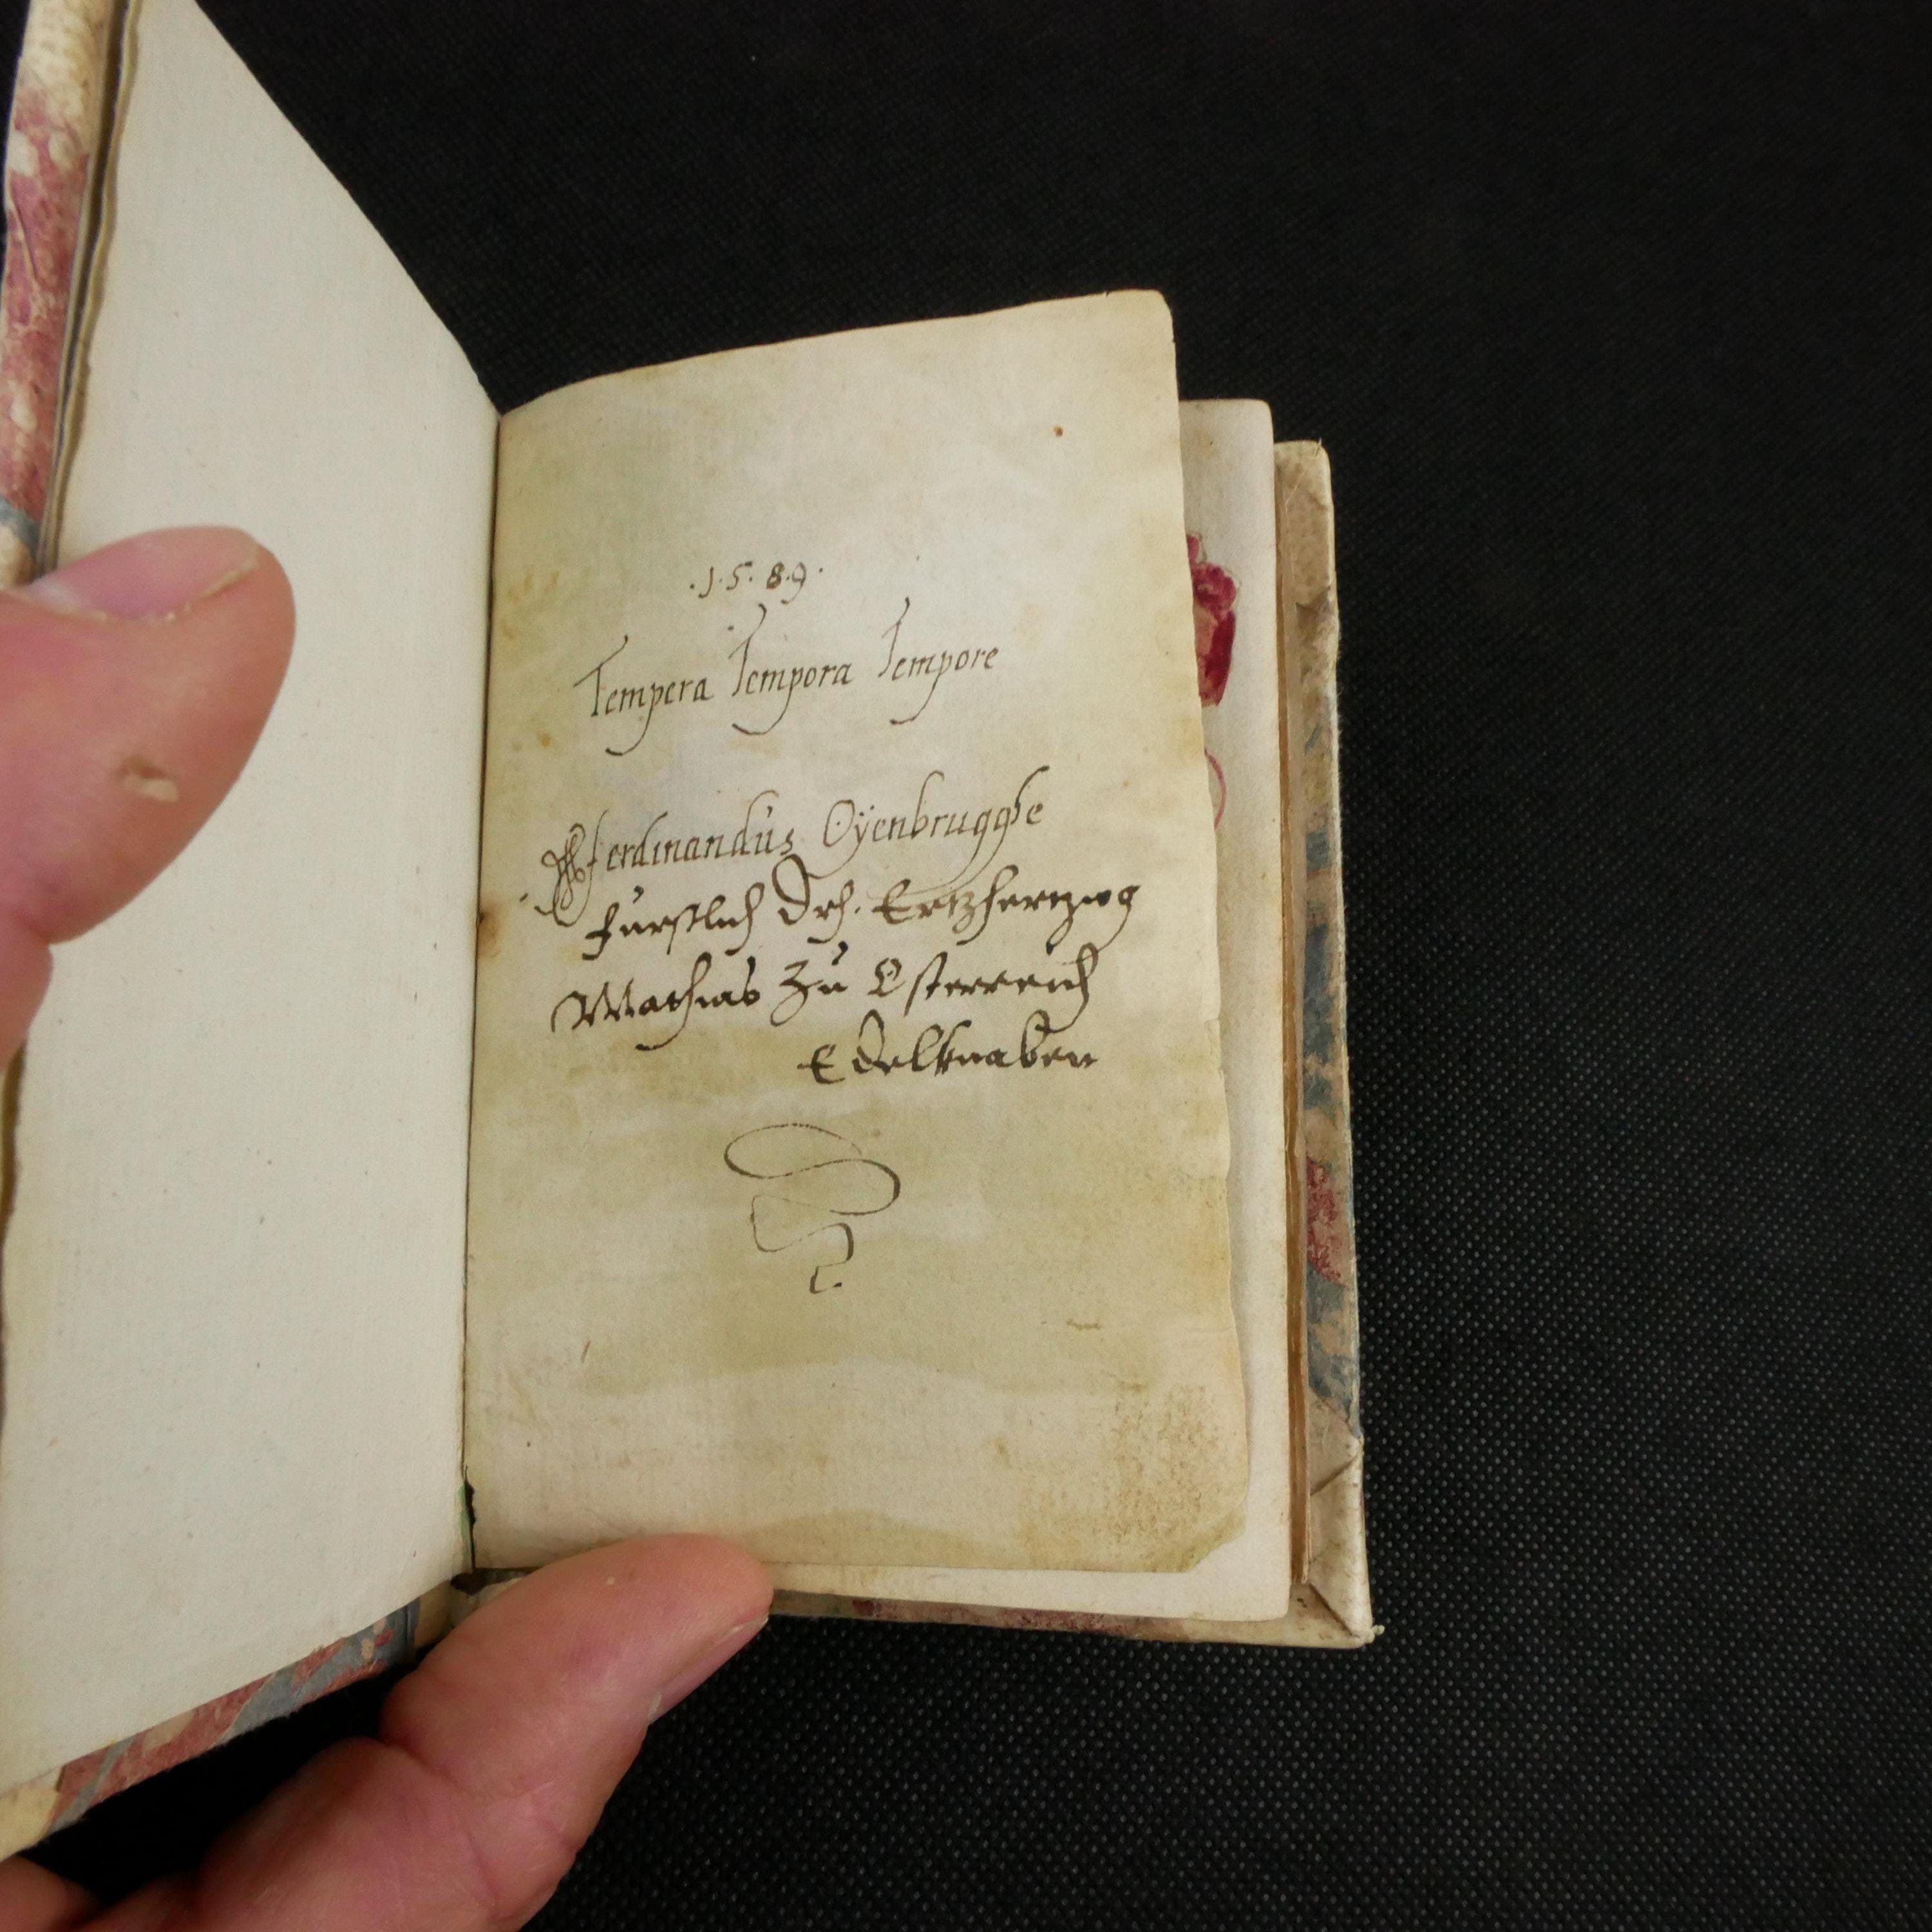 .1.5.8.9.
Tempera Tempora Tempore
Fferdinandus Oÿenbrugghe
fürstlich Drh. Ertzhertzog
Mathias Zu Osterreich
Edelknaben